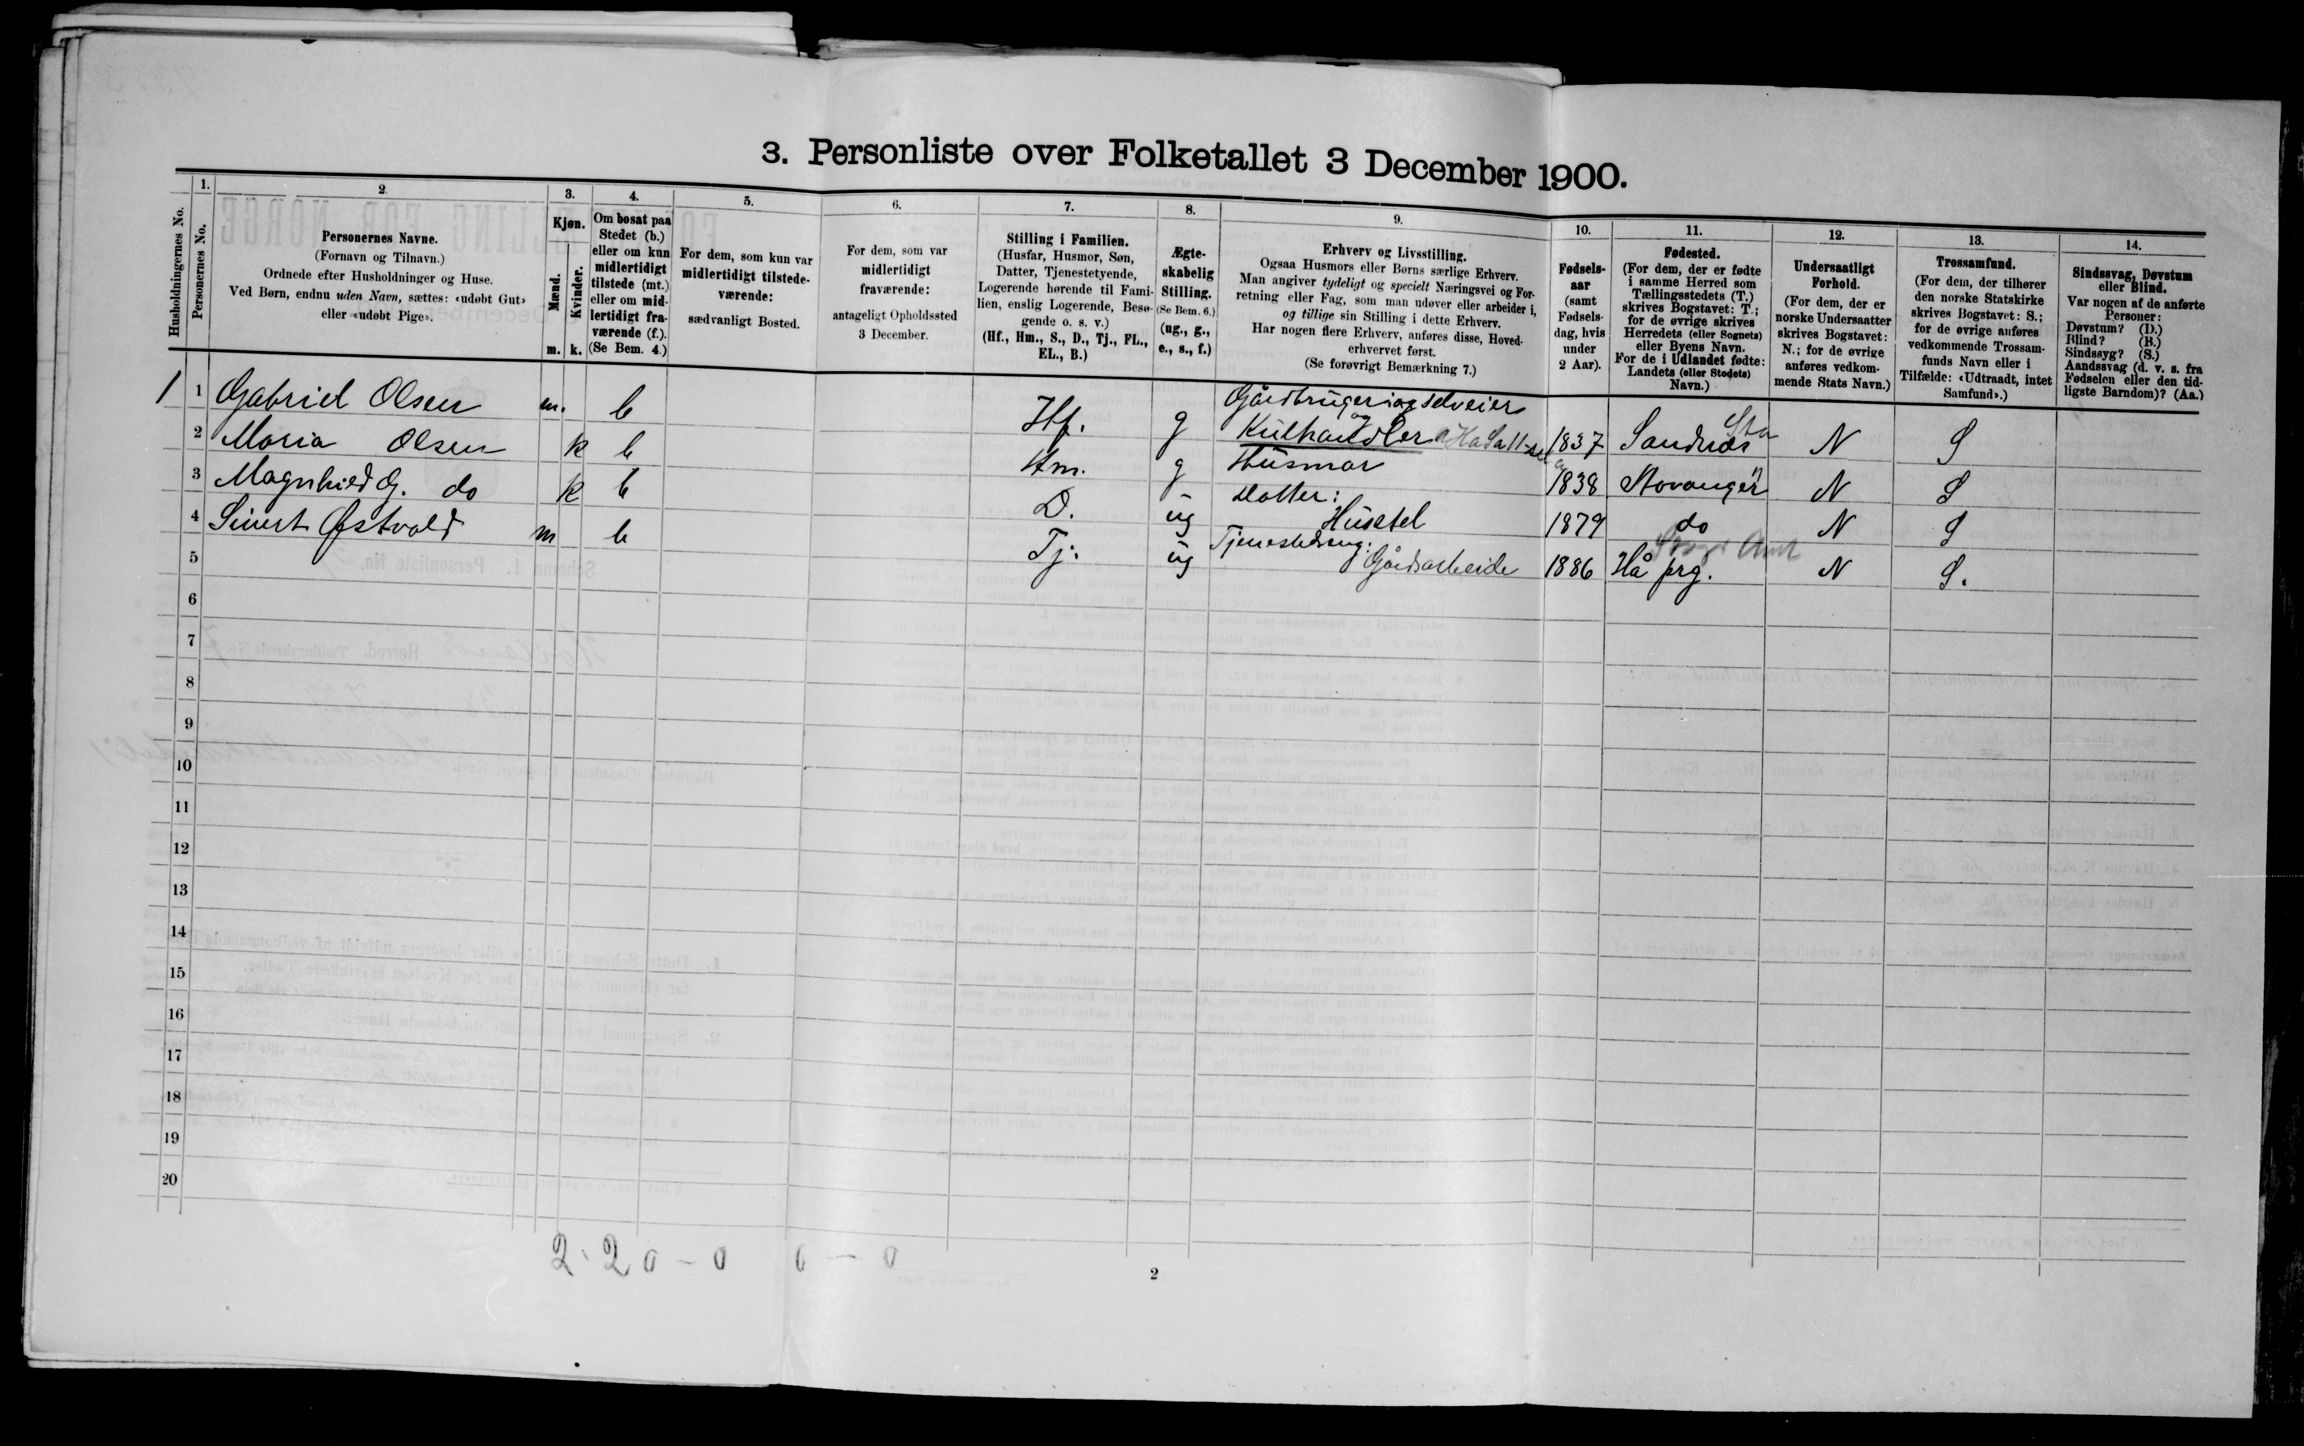 3. Personliste over Folketallet 3 December 1900.
Husholdningernes No.
1.
Personernes No.
2.
Personernes Navne.
(Fornavn og Tilnavn.)
Ordnede efter Husholdninger og Huse.
Ved Børn, endnu uden Navn, sættes: «udøbt Gut»
eller «udøbt Pige».
3.
Kjøn.
Mænd.
Kvinder.
m. k.
4.
Om bosat paa
Stedet (b.)
eller om kun
midlertidigt
tilstede (mt.)
eller om mid-
lertidigt fra-
værende (f.).
(Se Bem. 4.)
5.
For dem, som kun var
midlertidigt tilstede-
værende:
sædvanligt Bosted.
6.
For dem, som var
midlertidigt
fraværende:
antageligt Opholdssted
3 December.
7.
Stilling i Familien.
(Husfar, Husmor, Søn,
Datter, Tjenestetyende,
Logerende hørende til Fami-
lien, enslig Logerende, Besø-
gende o. s. v.)
(Hf., Hm., S., D., Tj., FL.,
EL., B.)
8.
Ægte-
skabelig
Stilling.
(Se Bem. 6.)
(ug., g.,
e., s., f.)
9.
Erhverv og Livsstilling.
Ogsaa Husmors eller Børns særlige Erhverv.
Man angiver tydeligt og specielt Næringsvei og For-
retning eller Fag, som man udøver eller arbeider i,
og tillige sin Stilling i dette Erhverv.
Har nogen flere Erhverv, anføres disse, Hoved-
erhvervet først.
(Se forøvrigt Bemærkning 7.)
10.
Fødsels-
aar
(samt
Fødsels-
dag, hvis
under
2 Aar).
11.
Fødested.
(For dem, der er fødte
i samme Herred som
Tællingsstedets (T.)
skrives Bogstavet: T.;
for de øvrige skrives
Herredets (eller Sognets)
eller Byens Navn.
For de i Udlandet fødte:
Landets (eller Stedets)
Navn.)
12.
Undersaatligt
Forhold.
(For dem, der er
norske Undersaatter
skrives Bogstavet:
N.; for de øvrige
anføres vedkom-
mende Stats Navn.)
13.
Trossamfund.
(For dem, der tilhører
den norske Statskirke
skrives Bogstavet: S.;
for de øvrige anføres
vedkommende Trossam-
funds Navn eller i
Tilfælde: «Udtraadt, intet
Samfund».)
14.
Sindssvag, Døvstum
eller Blind.
Var nogen af de anførte
Personer:
Døvstum? (D.)
Blind? (B.)
Sindssyg? (S.)
Aandssvag (d. v. s. fra
Fødselen eller den tid-
ligste Barndom)? (Aa.)
1 1 Gabriel Olsen m. b Hf. g Gårdbruger og selveier
og Kulhandler 1837 Sandnæs Sta N S
2 Maria Olsen k b Hm. g Husmor 1838 Stavanger N S
3 Magnhild G. do k b D. ug Datter:
Husstel 1879 do N S
4 Sivert Østvold m b Tj. ug Tjenestedreng:
Gårdsarbeide 1886 Hå prg. N S.
5
6
7
8
9
10
11
12
13
14
15
16
17
18
19
20
2 · 2 0 - 0 0 - 0
2